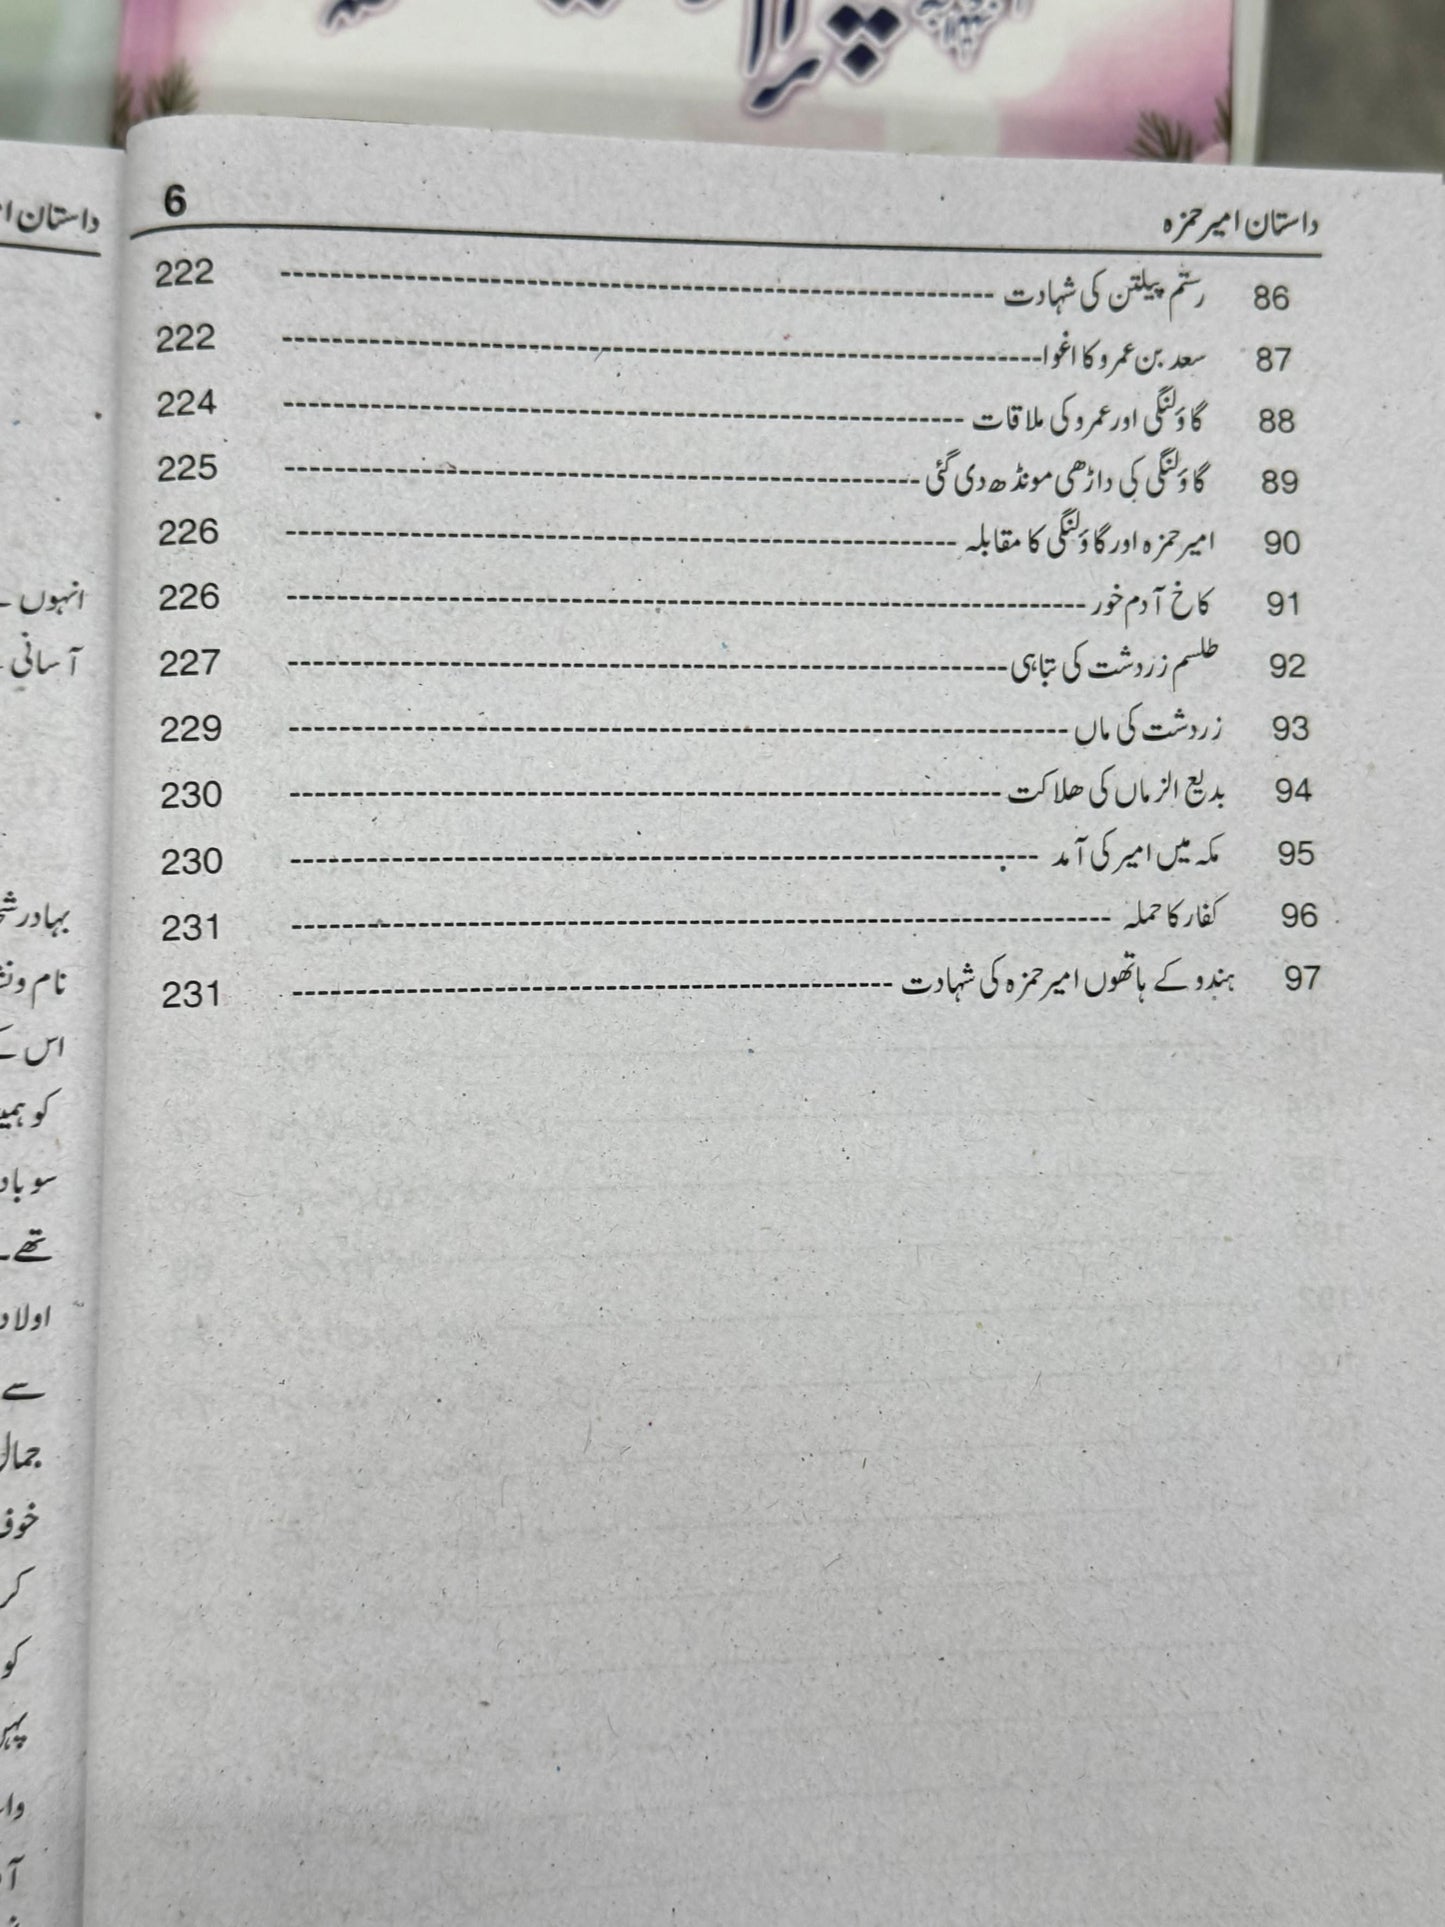 داستان امیر حمزہ 6
86 رستم پیلتن کی شہادت ---------- 222
87 سعد بن عمرو کا اغوا ---------- 222
88 گاؤلنگی اور عمرو کی ملاقات ---------- 224
89 گاؤلنگی کی داڑھی مونڈھ دی گئی ---------- 225
90 امیر حمزہ اور گاؤلنگی کا مقابلہ ---------- 226
91 کاخ آدم خور ---------- 226
92 طلسم زردشت کی تباہی ---------- 227
93 زردشت کی ماں ---------- 229
94 بدیع الزماں کی ھلاکت ---------- 230
95 مکہ میں امیر کی آمد ---------- 230
96 کفار کا حملہ ---------- 231
97 ہندو کے ہاتھوں امیر حمزہ کی شہادت ---------- 231
داستان ا
انہوں
آسانی
بہادر
نام و
اس کے
کو
سو
تھے۔
سے
جمال
کر
کو